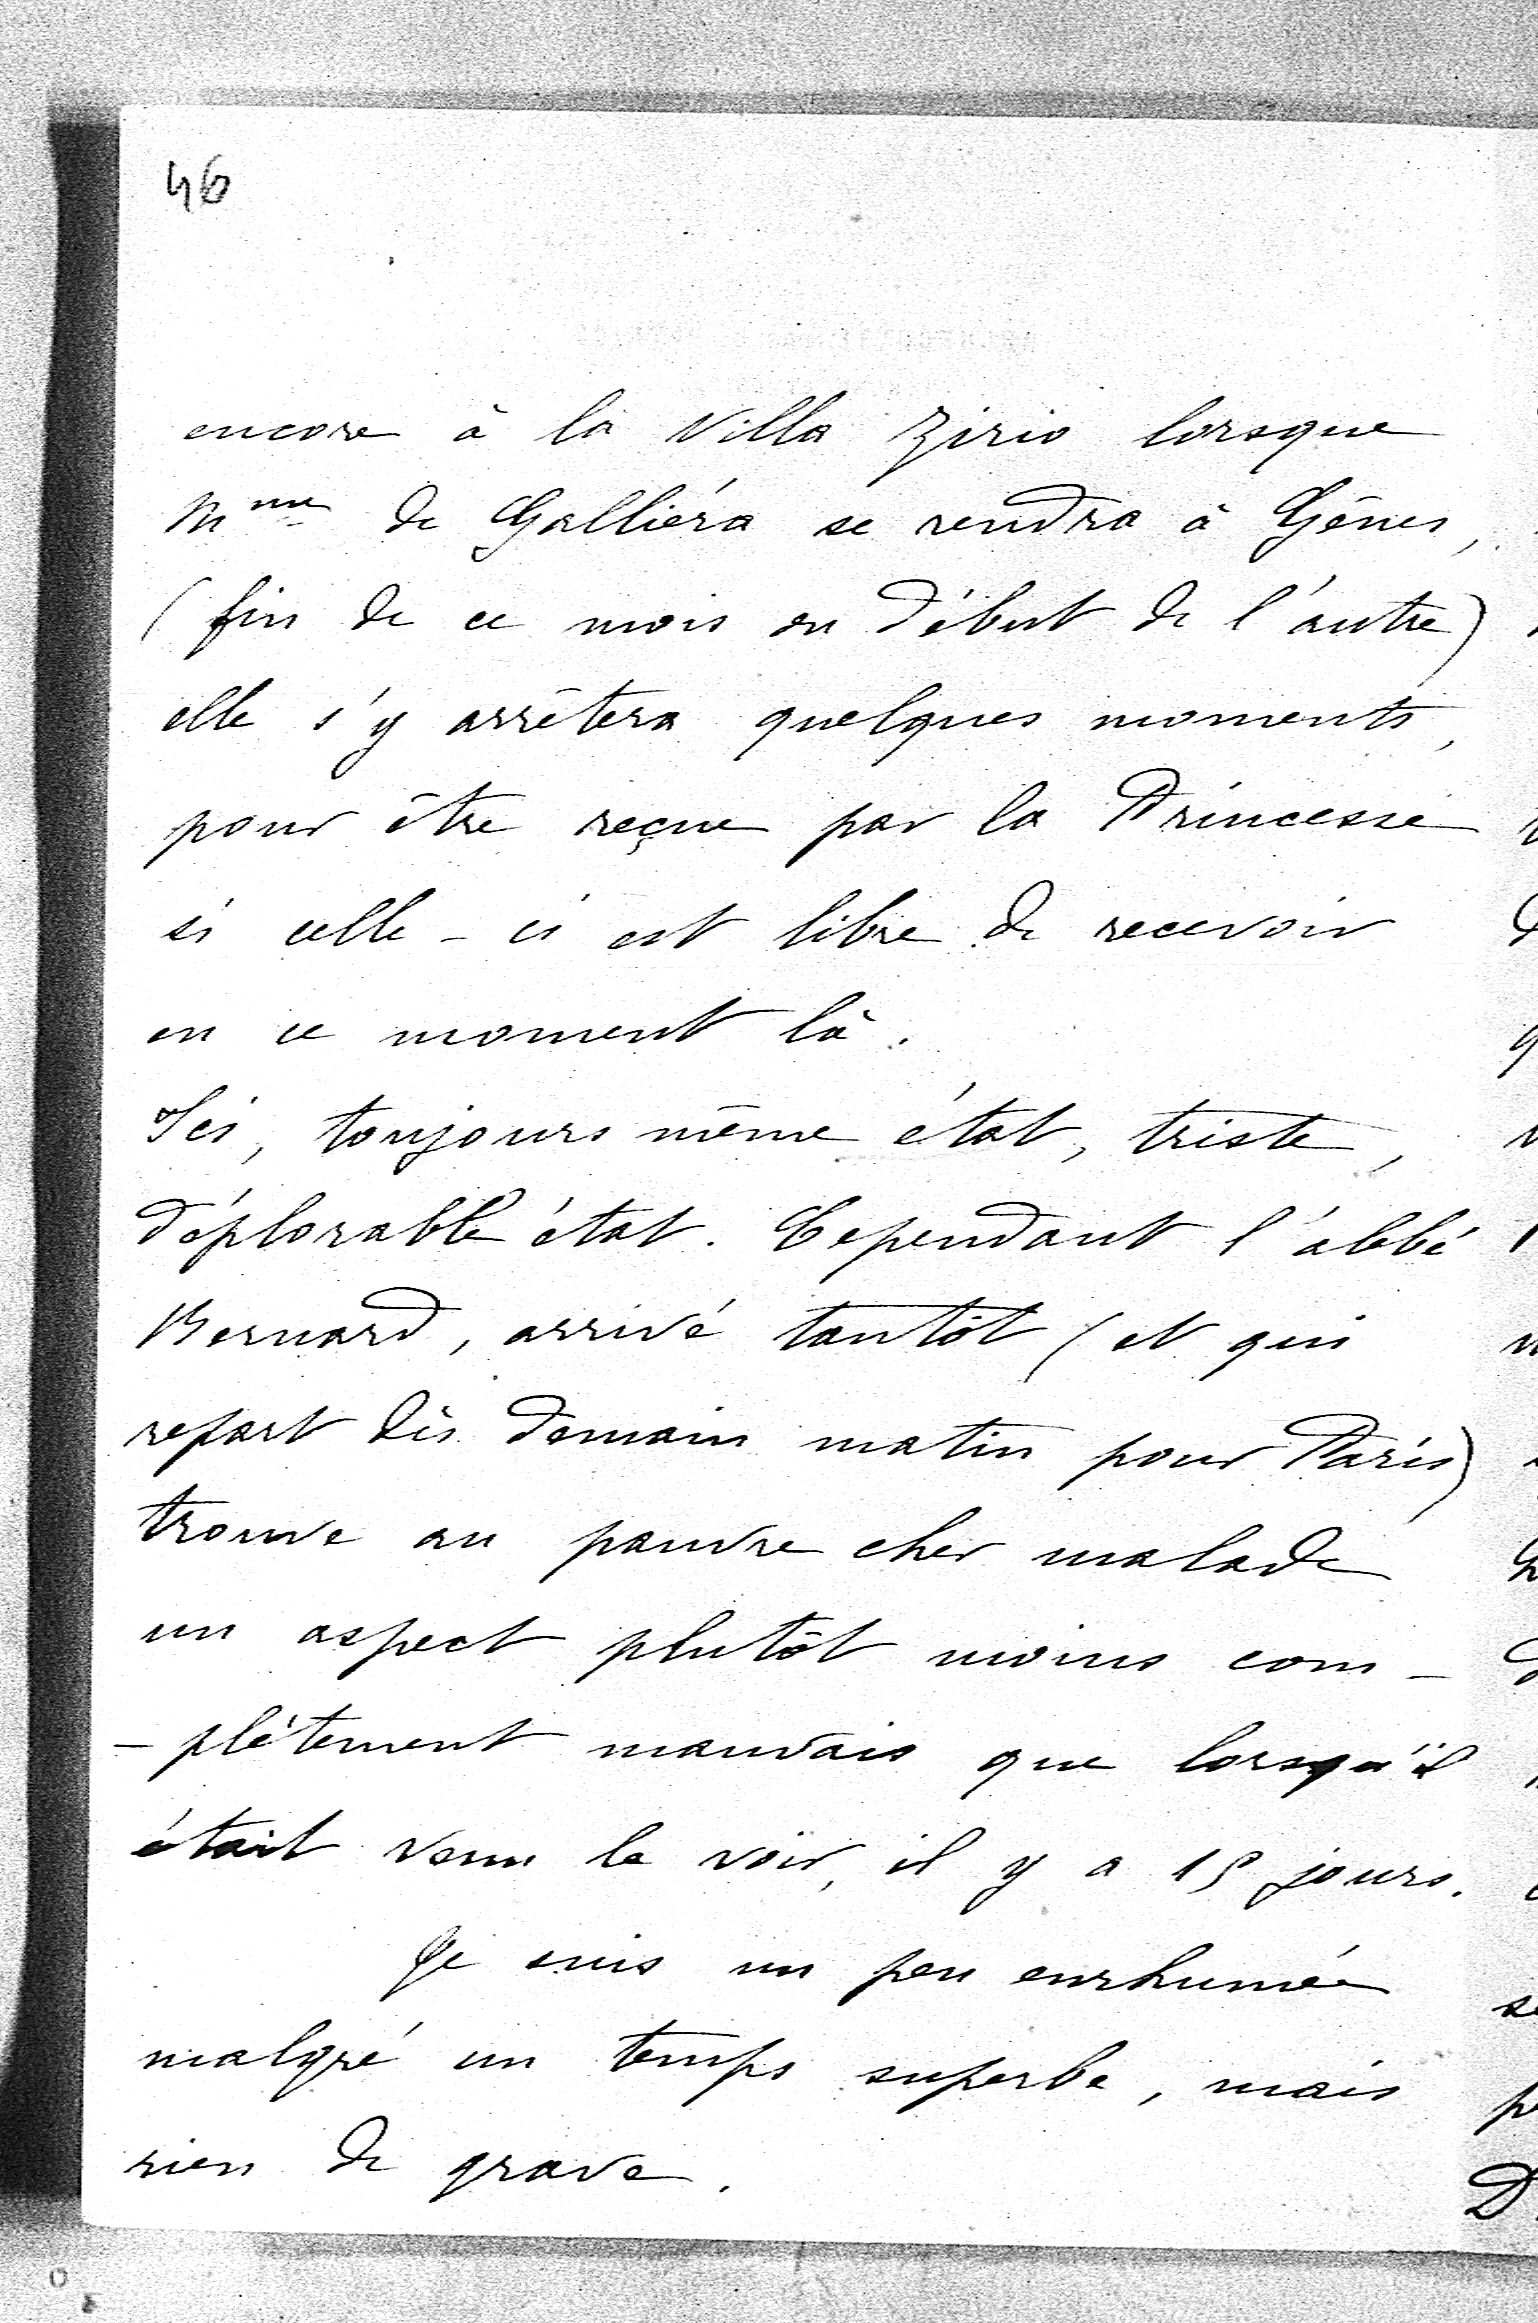 46
encore à la Villa Zirio lorsque
Mme de Galliéra se rendra à Gênes,
(fin de ce mois ou début de l'autre)
elle s'y arrêtera quelques moments,
pour être reçue par la Princesse
si celle-ci est libre de recevoir
en ce moment là.
Ici, toujours même état, triste,
déplorable état. Cependant l'abbé
Bernard, arrivé tantôt (et qui
repart dès demain matin pour Paris)
trouve au pauvre cher malade
un aspect plutôt moins com-
-plètement mauvais que lorsqu'il
était venu le voir, il y a 15 jours.
Je suis un peu enrhumée
malgré un temps superbe, mais
rien de grave.